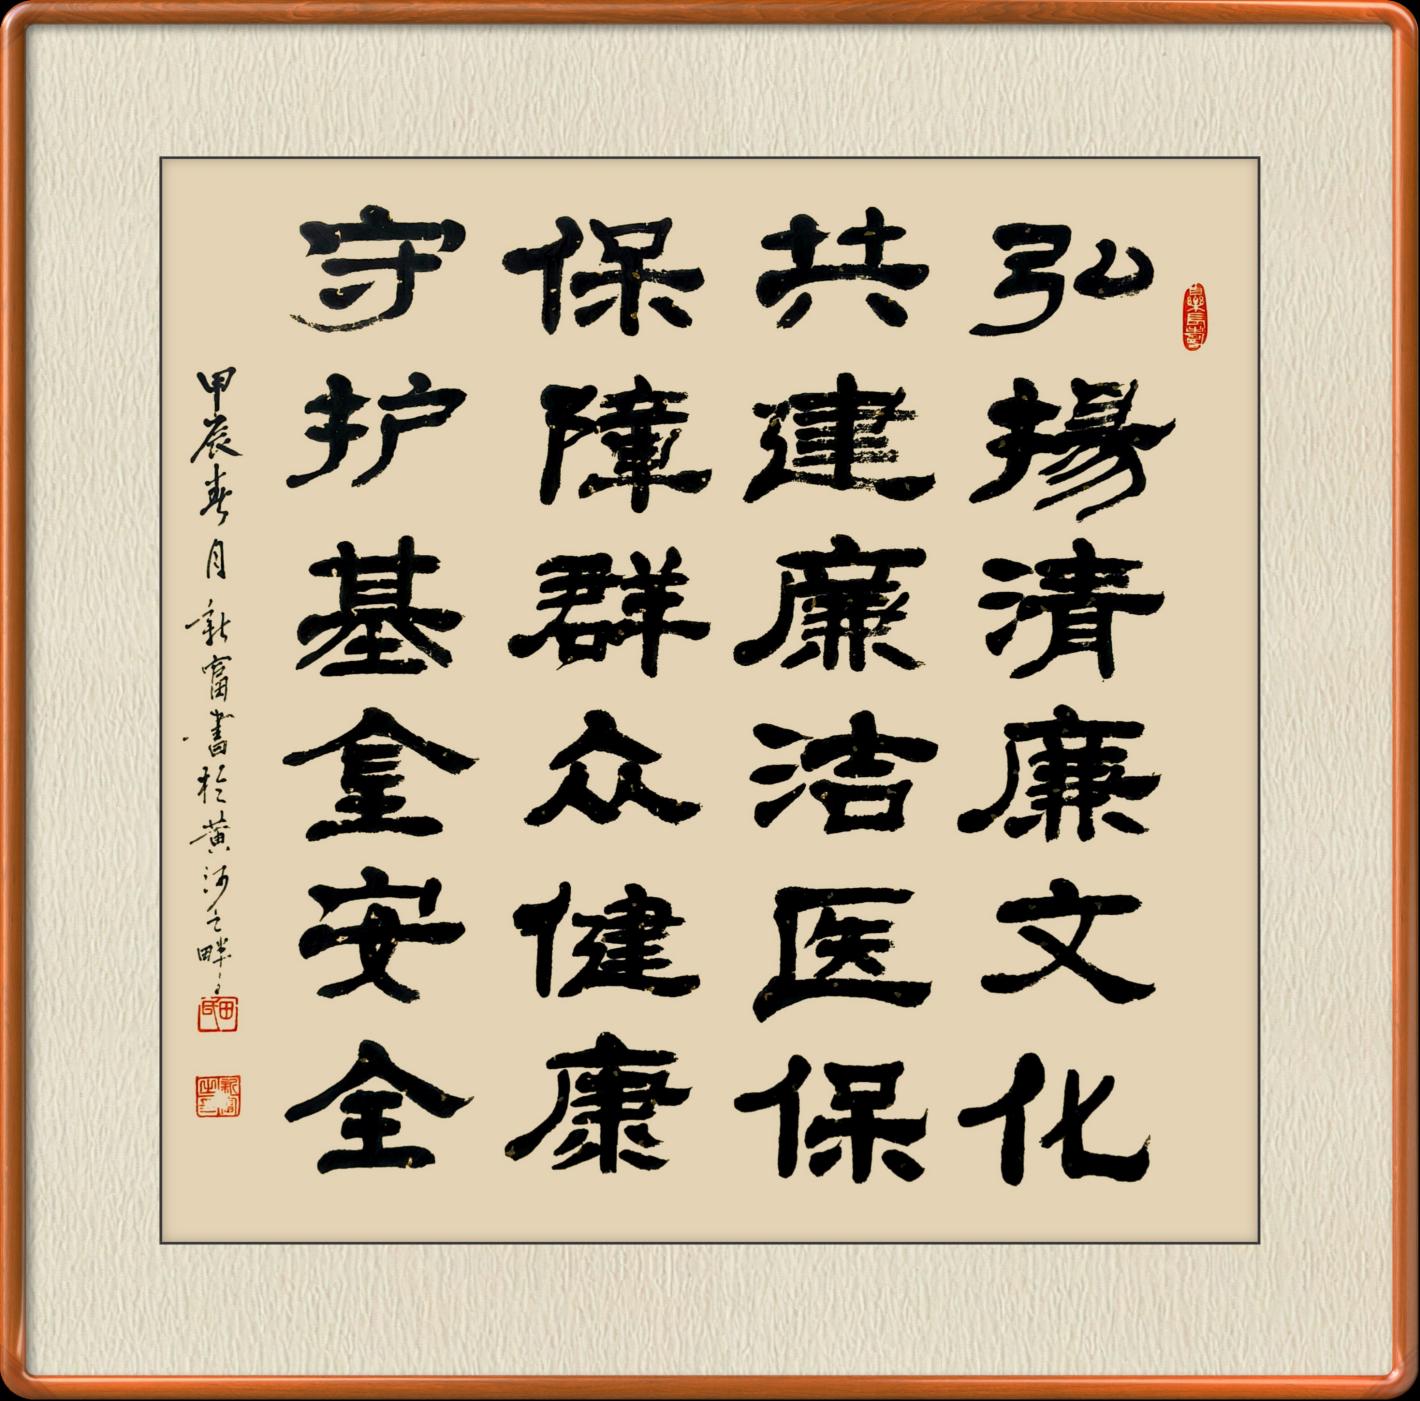 弘揚清廉文化
共建廉洁医保
保障群众健康
守护基金安全
甲辰春月新富書於黄河之畔